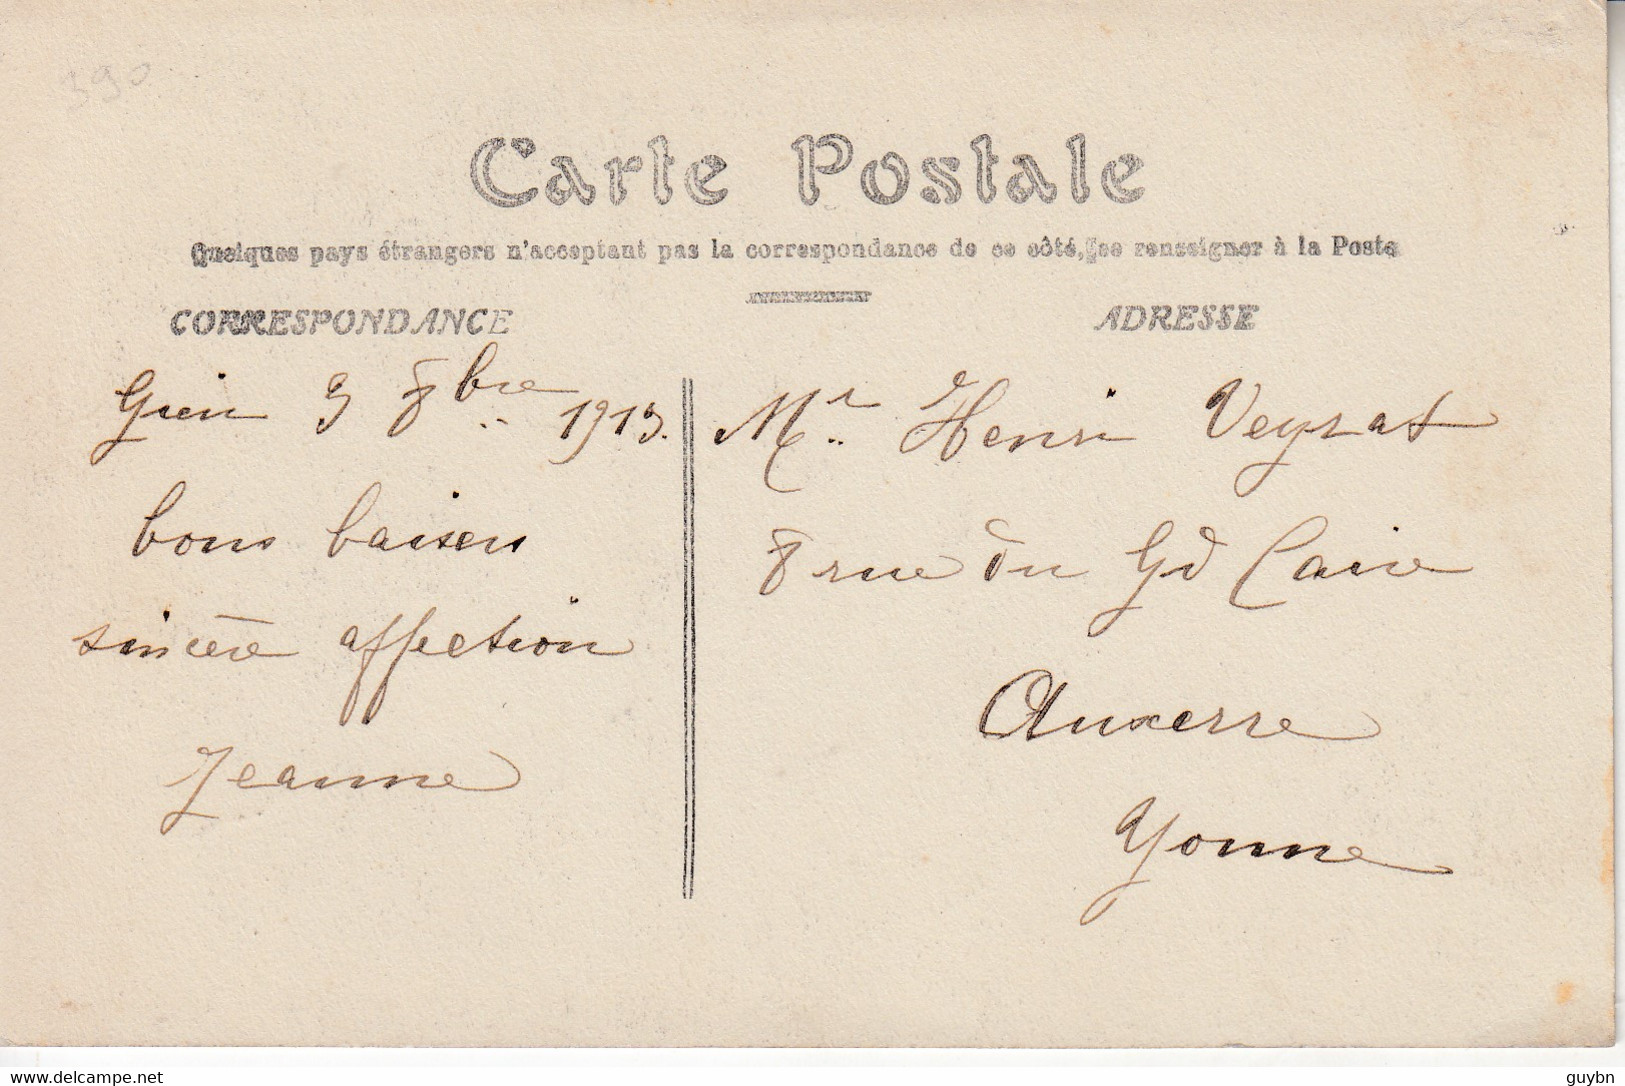 390
Carte Postale
Quelques pays étrangers n'acceptant pas la correspondance de ce côté, se renseigner à la Poste
CORRESPONDANCE
ADRESSE
Gien 9 8bre 1913.
bons baisers
sincère affection
Jeanne
Mr Henri Veyrat
8 rue du Gd Caire
Auxerre
Yonne
www.delcampe.net
guybn